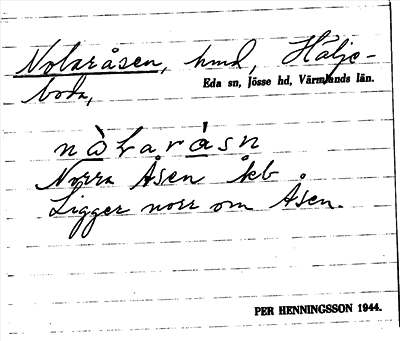 Nolaråsen, hmd, Häljo-
Eda sn, Jösse hd, Värmlands län.
boda,
nòlarásn
Norra Åsen åkb
Ligger norr om Åsen.
PER HENNINGSSON 1944.